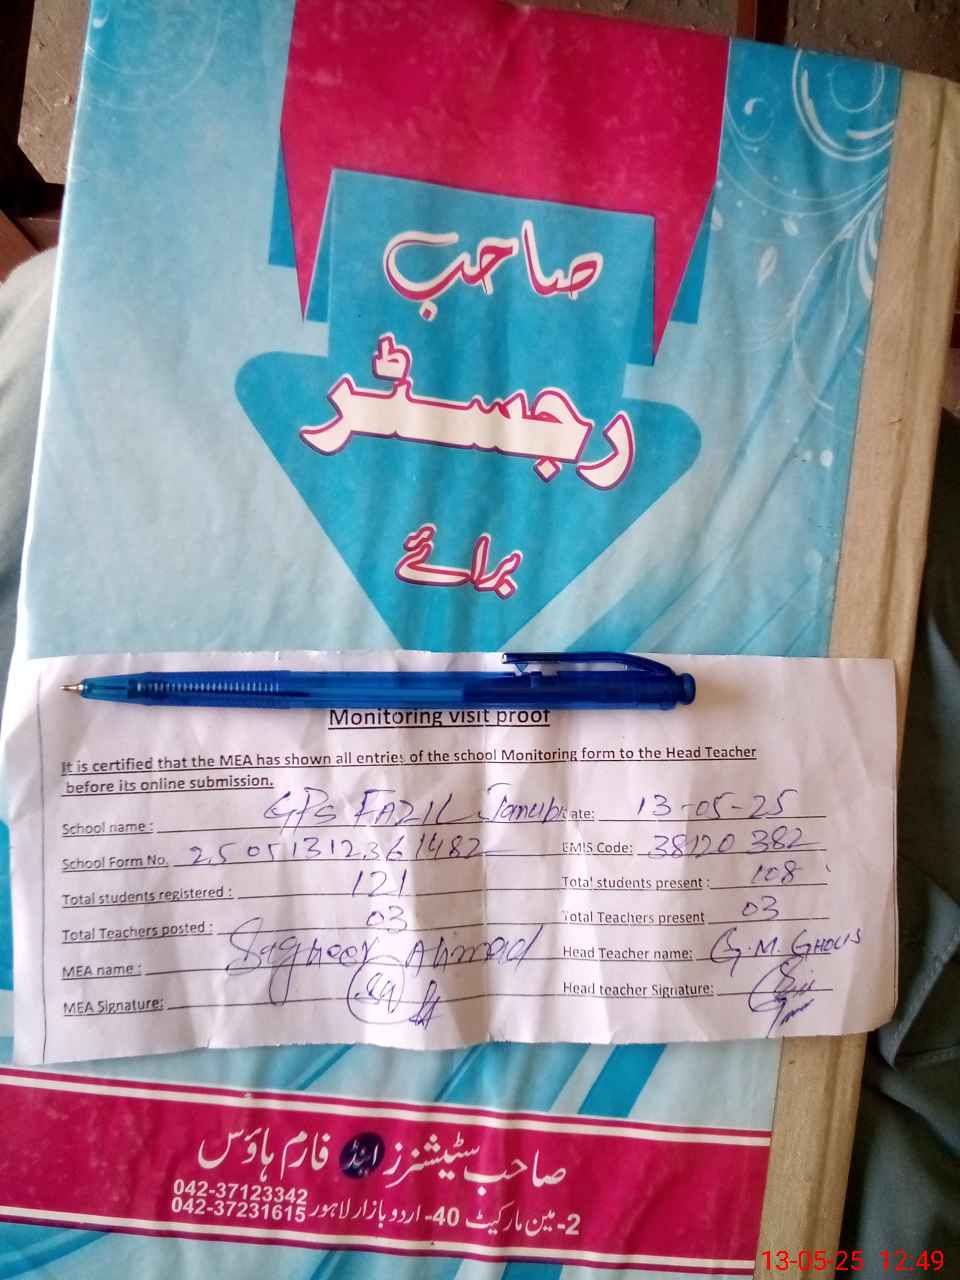 صاحب
رجسٹر
برائے
Monitoring visit proof
It is certified that the MEA has shown all entries of the school Monitoring form to the Head Teacher
before its online submission.
School name : GPS FAZIL Janubi ate: 13-05-25
School Form No. 2505131236 1482 EMIS Code: 38120 382
Total students registered : 121 Total students present : 108
Total Teachers posted : 03 Total Teachers present 03
MEA name : Sagheer Ahmad Head Teacher name: G.M. GHOUS
MEA Signature: Head teacher Signature:
صاحب سٹیشنرز اینڈ فارم ہاؤس
042-37123342
042-37231615 2-مین مارکیٹ 40-اردو بازار لاہور
13-05-25 12:49